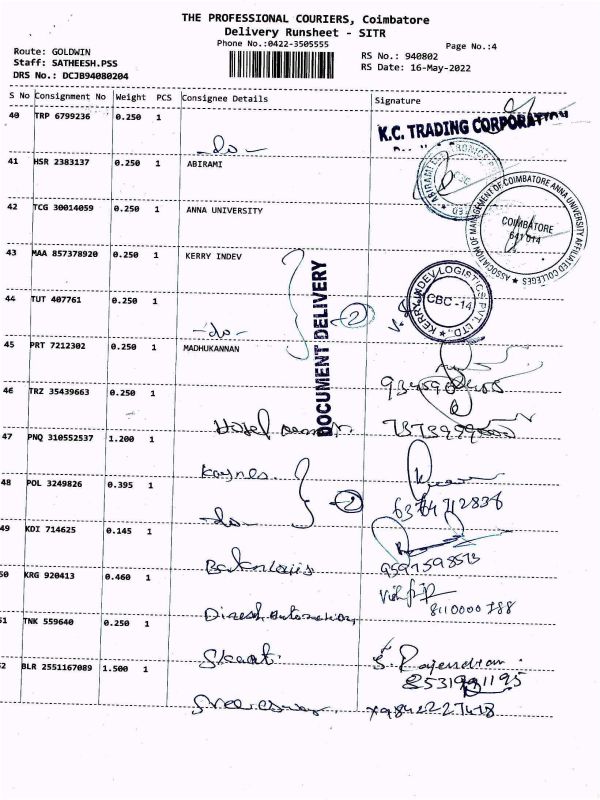 THE PROFESSIONAL COURIERS, Coimbatore
Delivery Runsheet - SITR
Phone No.:0422-3505555
Page No.:4
Route: GOLDWIN
Staff: SATHEESH.PSS
DRS No.: DCJB94080204
RS No.: 940802
RS Date: 16-May-2022
S No Consignment No Weight PCS Consignee Details Signature
40 TRP 6799236 0.250 1
-do-
K.C. TRADING CORPORATION
41 HSR 2383137 0.250 1 ABIRAMI
42 TCG 30014059 0.250 1 ANNA UNIVERSITY
ASSOCIATION OF MANAGEMENT OF COIMBATORE ANNA UNIVERSITY AFFILIATED COLLEGES
COIMBATORE
641 014
43 MAA 857378920 0.250 1 KERRY INDEV
KERRY INDEV LOGISTICS PVT. LTD.,
CBC -14
DOCUMENT DELIVERY
2
44 TUT 407761 0.250 1
-do-
45 PRT 7212302 0.250 1 MADHUKANNAN
46 TRZ 35439663 0.250 1
Hotel
47 PNQ 310552537 1.200 1
Kaynes.
48 POL 3249826 0.395 1
-do-
2
6374712838
49 KDI 714625 0.145 1
9597598513
50 KRG 920413 0.460 1
Dinesh Automation
8110000788
51 TNK 559640 0.250 1
S. Rajendran.
8531991195
52 BLR 2551167089 1.500 1
9842227478